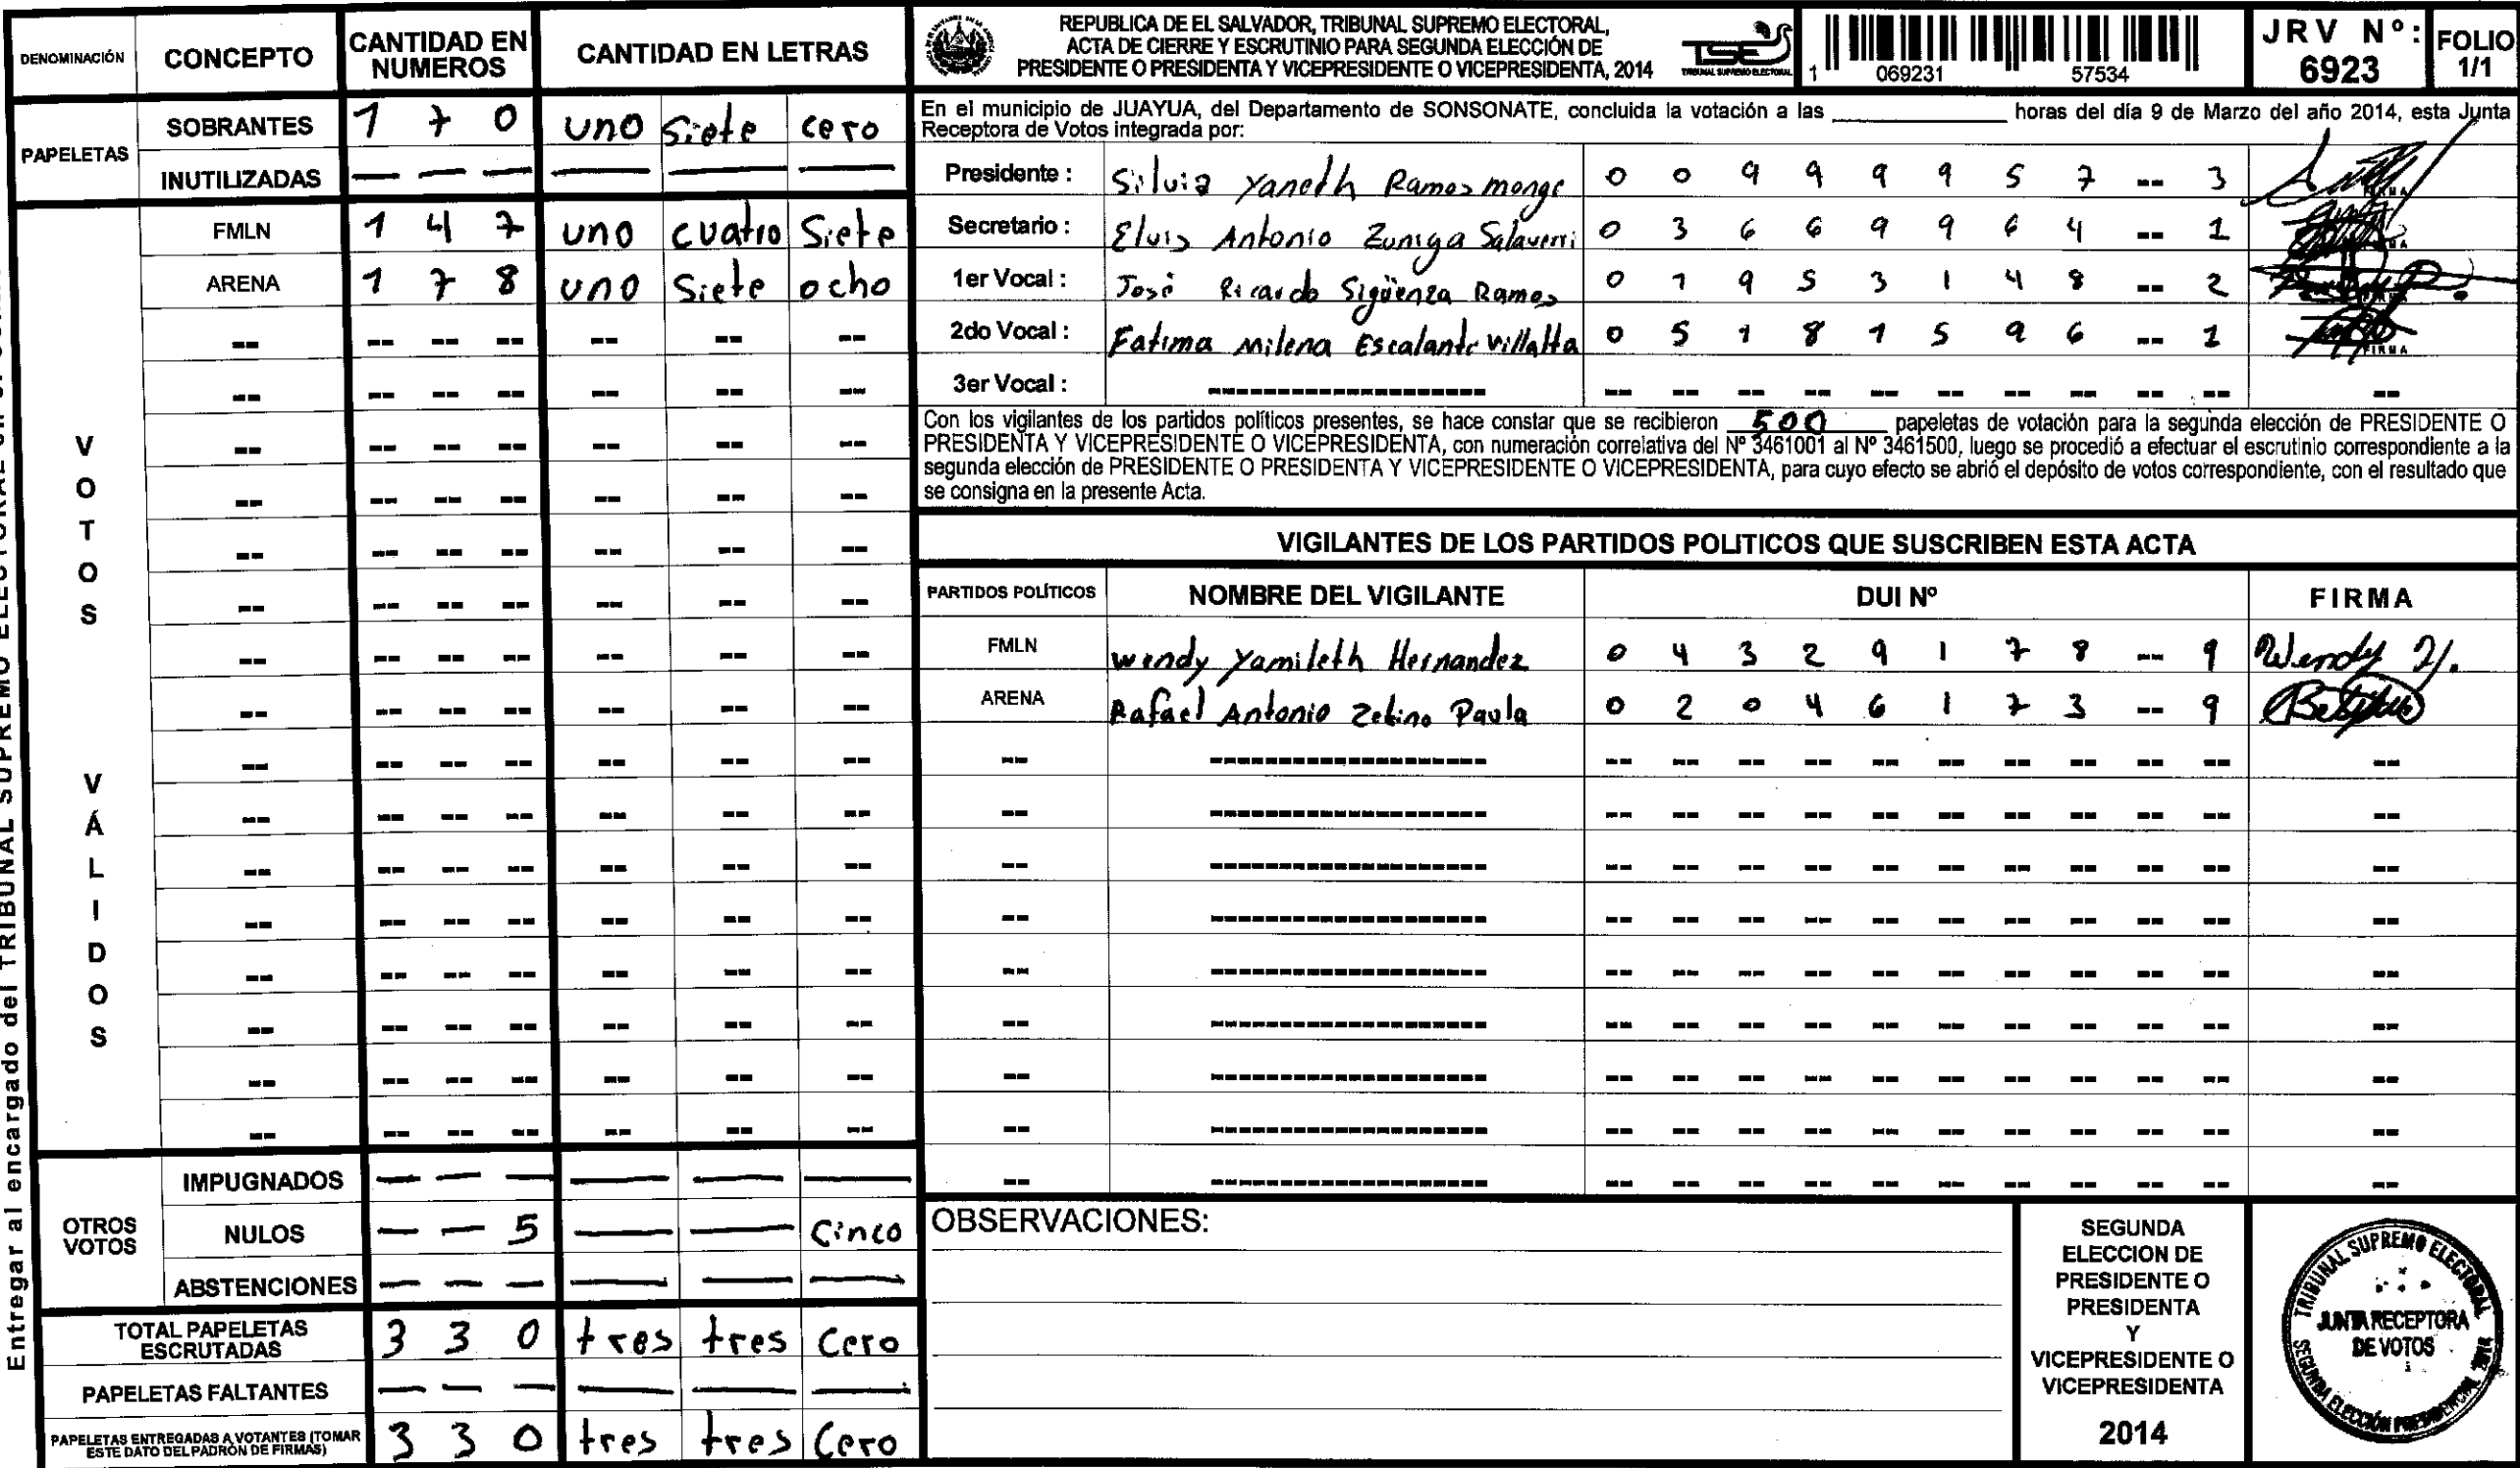 DENOMINACIÓN CONCEPTO CANTIDAD EN NUMEROS CANTIDAD EN LETRAS
PAPELETAS
SOBRANTES 1 7 0 uno siete cero
INUTILIZADAS — — — — — —
VOTOS VÁLIDOS
FMLN 1 4 7 uno cuatro Siete
ARENA 1 7 8 uno Siete ocho
OTROS VOTOS
IMPUGNADOS — — — — — —
NULOS — — 5 — — Cinco
ABSTENCIONES — — — — — —
TOTAL PAPELETAS ESCRUTADAS 3 3 0 tres tres Cero
PAPELETAS FALTANTES — — — — — —
PAPELETAS ENTREGADAS A VOTANTES (TOMAR ESTE DATO DEL PADRÓN DE FIRMAS) 3 3 0 tres tres Cero
Entregar al encargado del TRIBUNAL SUPREMO ELECTORAL
REPUBLICA DE EL SALVADOR, TRIBUNAL SUPREMO ELECTORAL,
ACTA DE CIERRE Y ESCRUTINIO PARA SEGUNDA ELECCIÓN DE
PRESIDENTE O PRESIDENTA Y VICEPRESIDENTE O VICEPRESIDENTA, 2014
TSE
TRIBUNAL SUPREMO ELECTORAL
1 069231 57534
JRV Nº: 6923
FOLIO 1/1
En el municipio de JUAYUA, del Departamento de SONSONATE, concluida la votación a las ____ horas del día 9 de Marzo del año 2014, esta Junta
Receptora de Votos integrada por:
Presidente : Silvia Yaneth Ramos monge 0 0 9 9 9 9 5 7 -- 3
Secretario : Elvis Antonio Zuniga Salaverri 0 3 6 6 9 9 6 4 -- 1
1er Vocal : José Ricardo Sigüenza Ramos 0 1 9 5 3 1 4 8 -- 2
2do Vocal : Fatima Milena Escalante Villalta 0 5 1 8 1 5 9 6 -- 1
3er Vocal :
FIRMA
Con los vigilantes de los partidos políticos presentes, se hace constar que se recibieron 500 papeletas de votación para la segunda elección de PRESIDENTE O
PRESIDENTA Y VICEPRESIDENTE O VICEPRESIDENTA, con numeración correlativa del Nº 3461001 al Nº 3461500, luego se procedió a efectuar el escrutinio correspondiente a la
segunda elección de PRESIDENTE O PRESIDENTA Y VICEPRESIDENTE O VICEPRESIDENTA, para cuyo efecto se abrió el depósito de votos correspondiente, con el resultado que
se consigna en la presente Acta.
VIGILANTES DE LOS PARTIDOS POLITICOS QUE SUSCRIBEN ESTA ACTA
PARTIDOS POLÍTICOS NOMBRE DEL VIGILANTE DUI Nº FIRMA
FMLN Wendy Yamileth Hernandez 0 4 3 2 9 1 7 8 -- 9 Wendy Y.
ARENA Rafael Antonio Zetino Paula 0 2 0 4 6 1 7 3 -- 9
OBSERVACIONES:
SEGUNDA
ELECCION DE
PRESIDENTE O
PRESIDENTA
Y
VICEPRESIDENTE O
VICEPRESIDENTA
2014
TRIBUNAL SUPREMO ELECTORAL
JUNTA RECEPTORA
DE VOTOS
SEGUNDA ELECCIÓN PRESIDENCIAL 2014